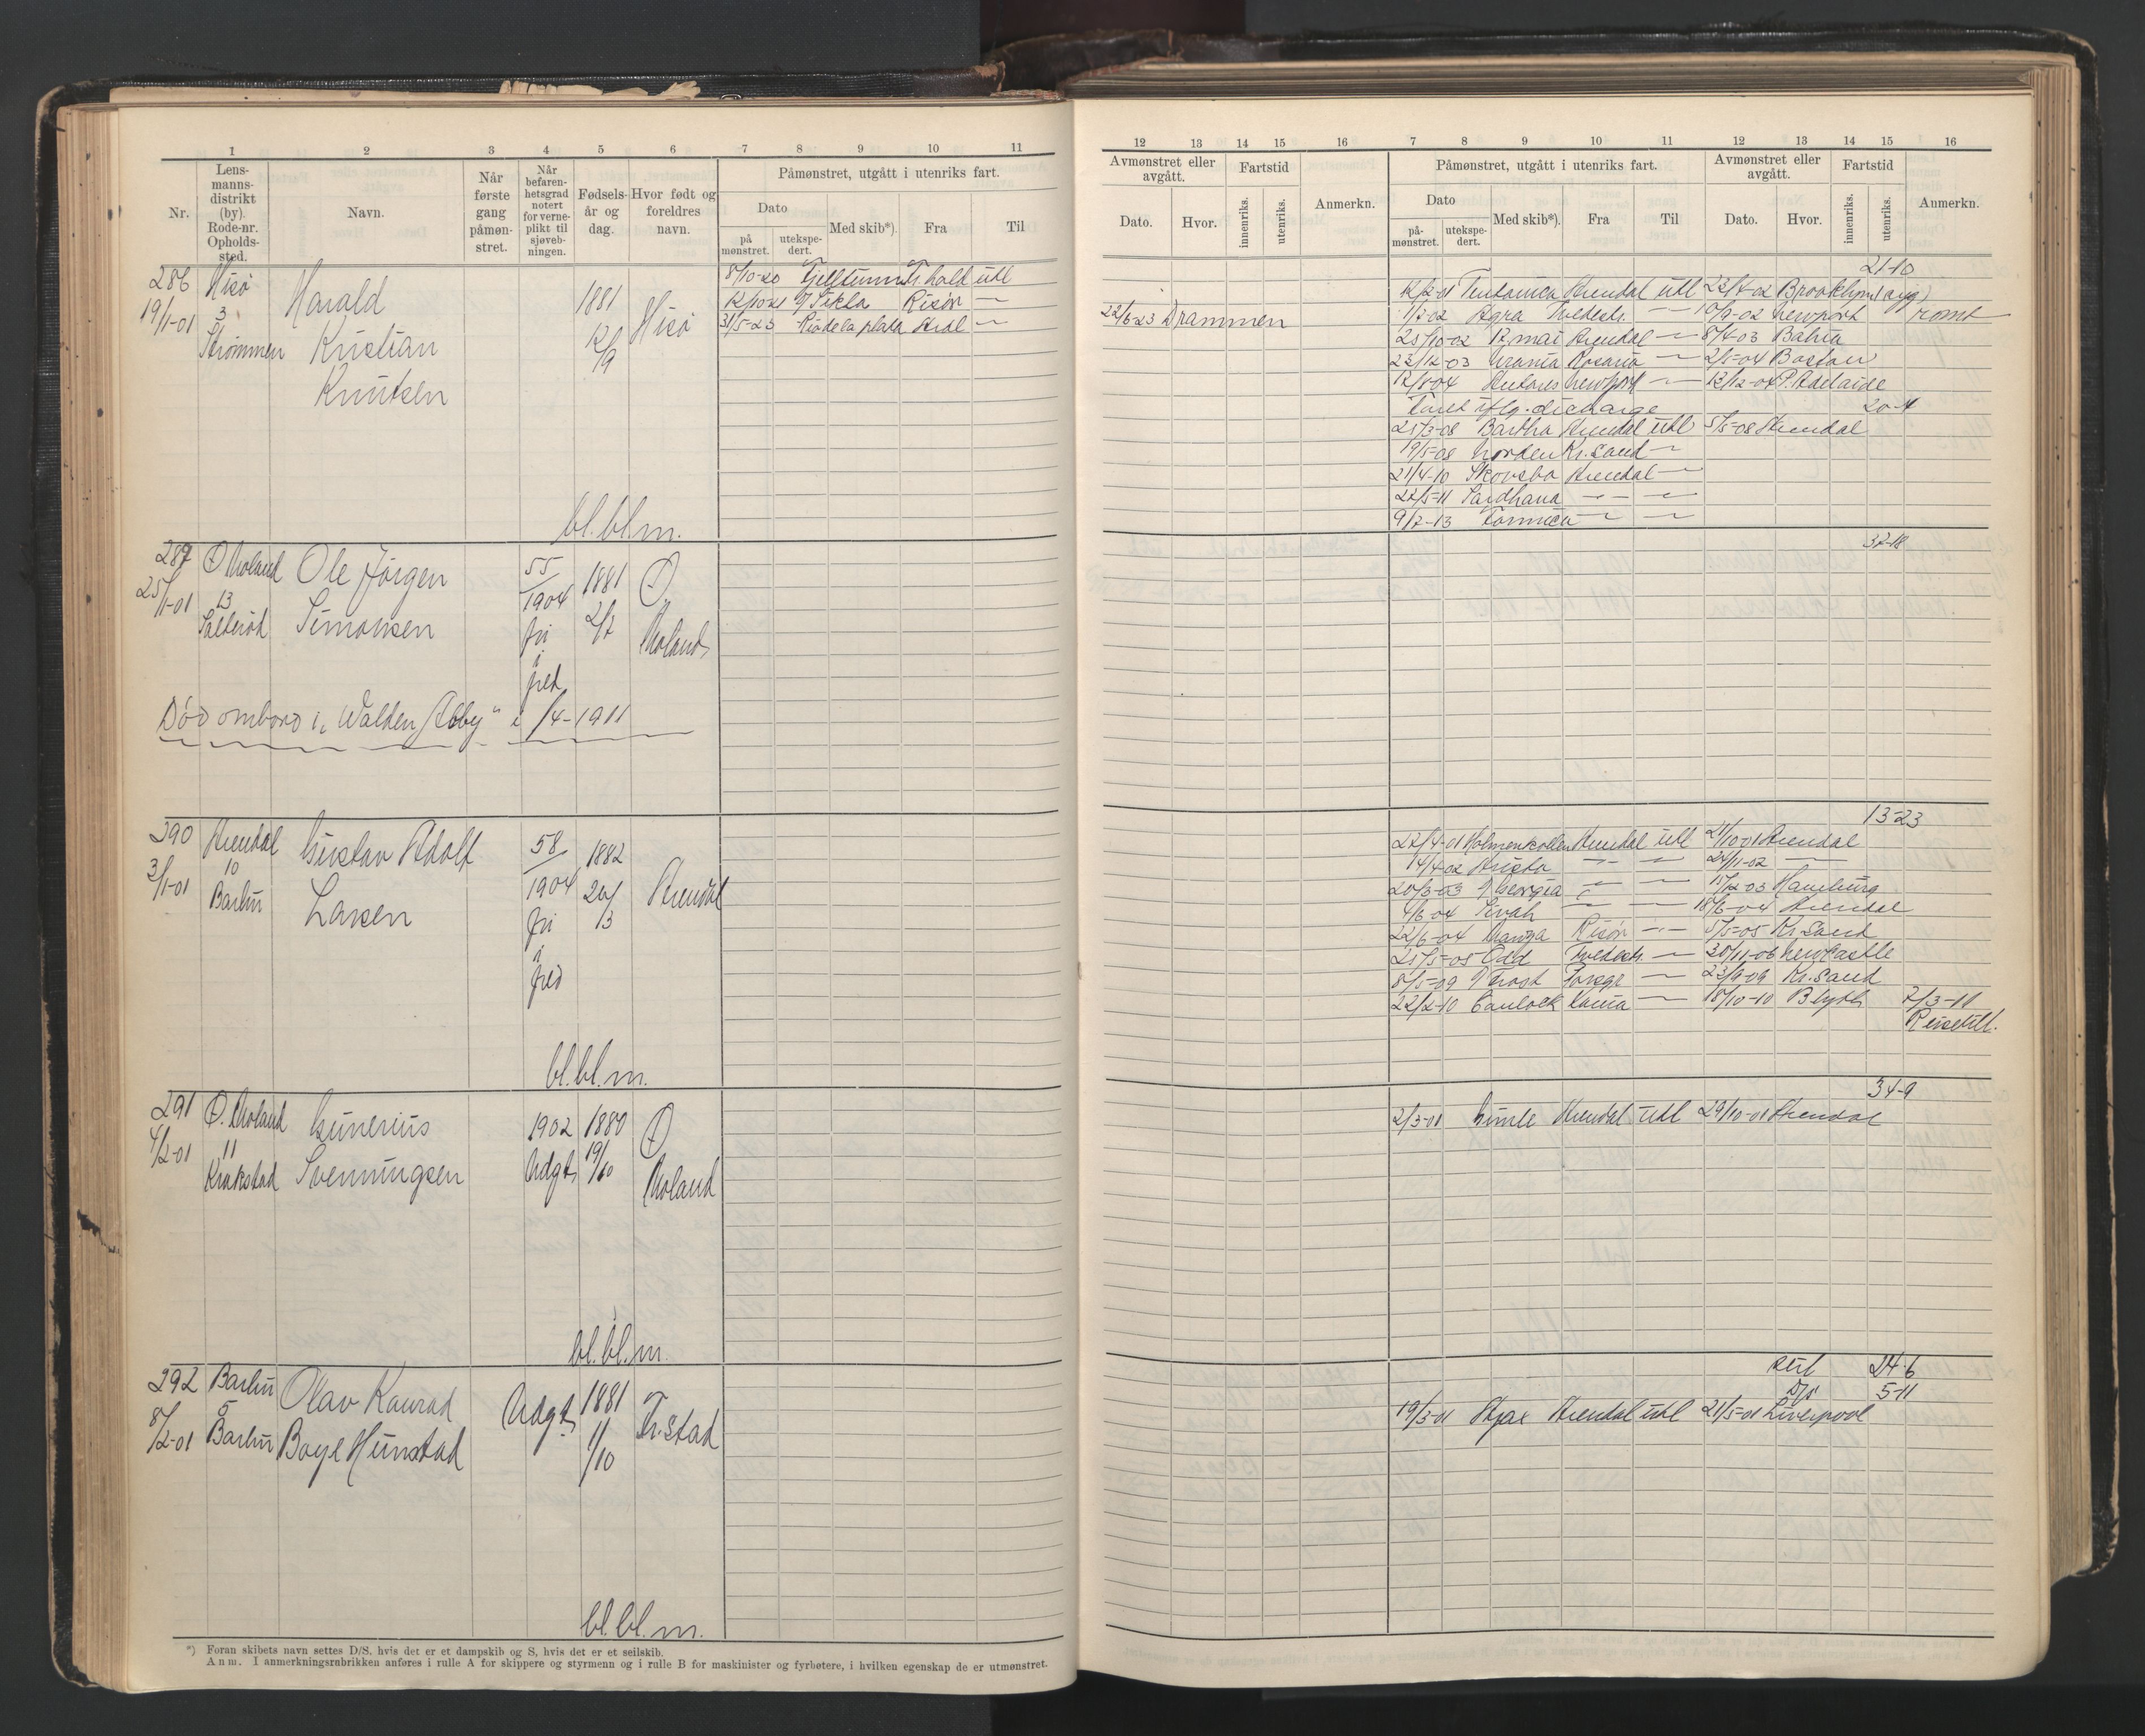 1 2 3 4 5 6 7 8 9 10 11
Nr.
Lens-
manns-
distrikt
(by).
Rode-nr.
Opholds-
sted.
Navn.
Når
første
gang
påmøn-
stret.
Når
befaren-
hetsgrad
notert
for verne-
plikt til
sjøveb-
ningen.
Fødsels-
år og
dag.
Hvor født og
foreldres
navn.
Påmønstret, utgått i utenriks fart.
Dato
på
mønstret.
utekspe-
dert.
Med skib*).
Fra
Til
286 Hisø Harald 1881 Hisø
19/1-01 3 Kristian 12/9
Strømmen Knutsen
8/10-20 Fr.hald utl
12/10-21 Risør —
31/5-23 Rio de la plata Ardl —
bl. bl. m.
287 Ø Moland Ole Jörgen 55/1904 1881 Ø
25/1-01 13 Simonsen fri 2/7 Moland
Salterød i
fred
Død ombord i „Walden Abby" i /4-1911
290 Arendal Gustav Adolf 58/1904 1882 Arendal
3/1-01 10 Larsen fri 20/3
Barbu i
fred
bl. bl. m.
291 Ø. Moland Gunerius 1902 1880 Ø
4/2-01 11 Svenningsen Udgt 19/10 Moland
Krokstad
bl. bl. m.
292 Barbu Olav Konrad Udgt 1881 Fr.stad
8/2-01 5 Boye Hunstad 11/10
Barbu
bl. bl. m.
*) Foran skibets navn settes D/S. hvis det er et dampskib og S, hvis det er et seilskib.
Anm. I anmerkningsrubrikken anføres i rulle A for skippere og styrmenn og i rulle B for maskinister og fyrbøtere, i hvilken egenskap de er utmønstret.
12 13 14 15 16 7 8 9 10 11 12 13 14 15 16
Avmønstret eller
avgått.
Fartstid
Dato.
Hvor.
innenriks.
utenriks.
Anmerkn.
Påmønstret, utgått i utenriks fart.
Dato
på-
mønstret.
utekspe-
dert.
Med skib*).
Fra
Til
Avmønstret eller
avgått.
Dato.
Hvor.
Fartstid
innenriks.
utenriks.
Anmerkn.
22/6-23 Drammen
21-10
12/2-01 Teutonica Arendal utl 23/7-02 Brooklyn
1/7-02 Agra Tvedestr. — 17/9-02 Newport rømt
25/10-02 17. mai Arendal — 8/4-03 Bahia
23/12-03 Urania Rosario — 2/5-04 Boston
12/8-04 Antares Newport — 13/12-04 P. Adelaide
iflg. discharge 20-4
25/3-08 Bertha Arendal utl 5/5-08 Arendal
19/5-08 Norden Kr.sand —
21/4-10 Skovsbo Arendal —
22/5-11 Sardhana — —
9/7-13 — —
37-18
13-23
22/4-01 Holmenkollen Arendal utl 21/10-01 Arendal
14/4-02 — — 24/11-02 —
20/3-03 Georgia — — 15/12-03 Hamburg
4/6-04 Sirah — — 18/6-04 Arendal
22/6-04 Risør — 5/5-05 Kr.sand
25/5-05 Odd Tvedestr. — 30/11-06 Newcastle
8/5-09 — 23/9-09 Kr.sand
22/2-10 — 18/10-10 Blyth 7/3-11
Reisetill.
34-9
2/3-01 Gimle Arendal utl 29/10-01 Arendal
seil 24-6
D/S 5-11
19/3-01 Ajax Arendal utl 21/5-01 Liverpool